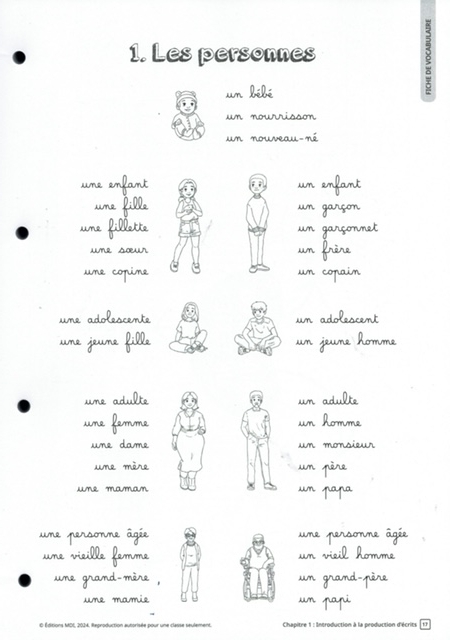 FICHE DE VOCABULAIRE
1. Les personnes
un bébé
un nourrisson
un nouveau-né
une enfant
une fille
une fillette
une sœur
une copine
un enfant
un garçon
un garçonnet
un frère
un copain
une adolescente
une jeune fille
un adolescent
un jeune homme
une adulte
une femme
une dame
une mère
une maman
un adulte
un homme
un monsieur
un père
un papa
une personne âgée
une vieille femme
une grand-mère
une mamie
une personne âgée
un vieil homme
un grand-père
un papi
© Éditions MDI, 2024. Reproduction autorisée pour une classe seulement.
Chapitre 1 : Introduction à la production d'écrits 17